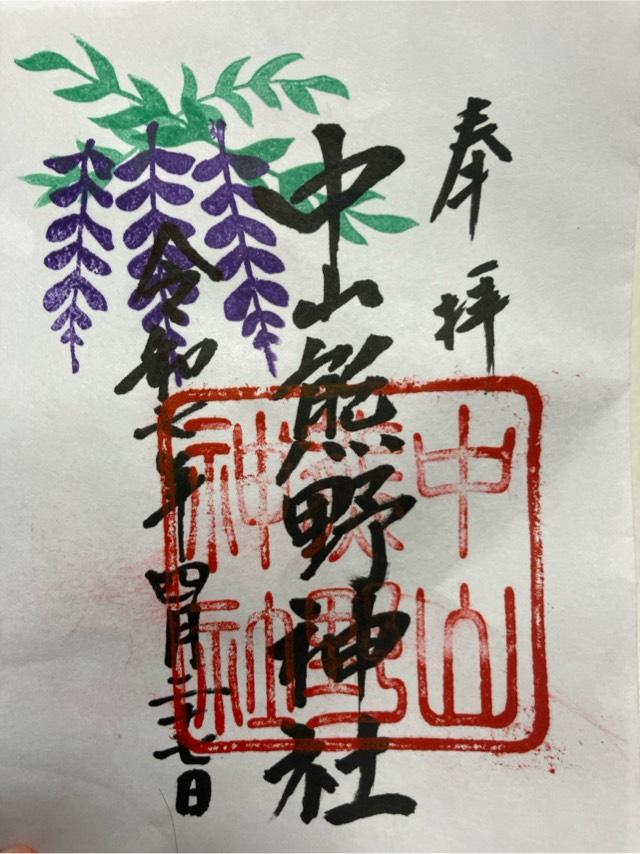 奉拝
中山熊野神社
令和七年四月二十七日
中山
熊野
神社